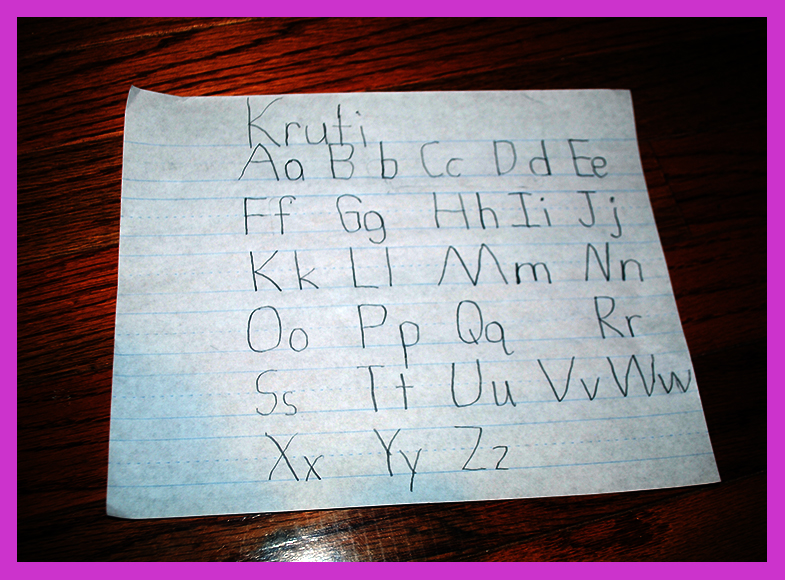 Kruti
Aa Bb Cc Dd Ee
Ff Gg Hh Ii Jj
Kk Ll Mm Nn
Oo Pp Qq Rr
Ss Tt Uu Vv Ww
Xx Yy Zz